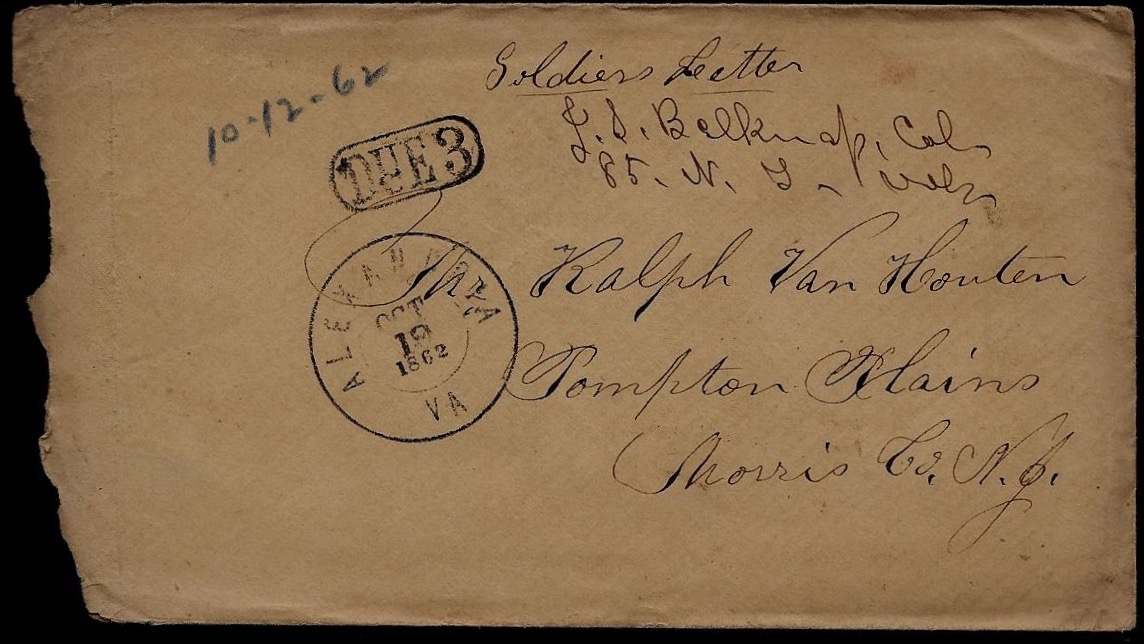 10-12-62
Soldiers Letter
J. S. Belknap, Col
85. N. Y. Vols
DUE 3
ALEXANDRIA
OCT
12
1862
VA
Mr Ralph Van Houten
Pompton Plains
Morris Co. N.J.